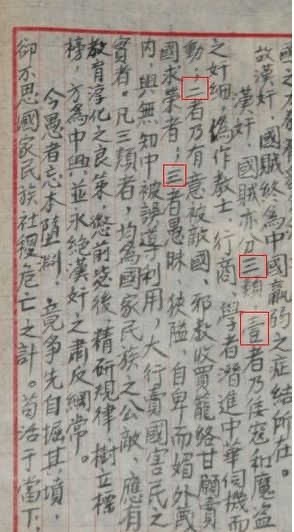 故漢奸，國賊終為中國羸的之症結所在。
漢奸，國賊亦分三類：壹者乃倭寇和魔盜
之奸細，偽作教士、行商、學者潛進中華伺機而
動；二者乃有意被敵國、邪教收買籠絡甘願賣
國求榮者；三者愚昧、狹隘、自卑而媚外或
內，與無知中被誘導利用，大行賣國害民之
實者。凡三類者，均為國家民族之公敵，應有
教育淳化之良策，懲前毖後，精研規律，樹立標
榜，方為中興，並永絕漢奸之肅反綱常。
今愚者忘本墮淵，竟爭先自掘其墳，
卻不思國家民族社稷危亡之計。苟活于當下，